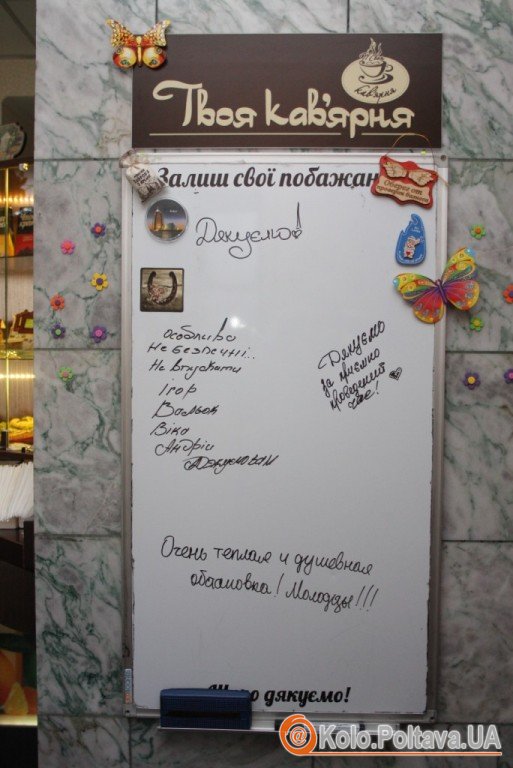 Кав'ярня
Твоя кав'ярня
Залиш свої побажан
Оберег от
Дякуємо!
особливо
Небезпечні..
Не впускати
Ігор
Вальок
Віка
Андрій
Дякуємо
за приємно
проведений
час!
Очень теплая и душевная
обстановка! Молодцы!!!
Щиро дякуємо!
@Kolo.Poltava.UA